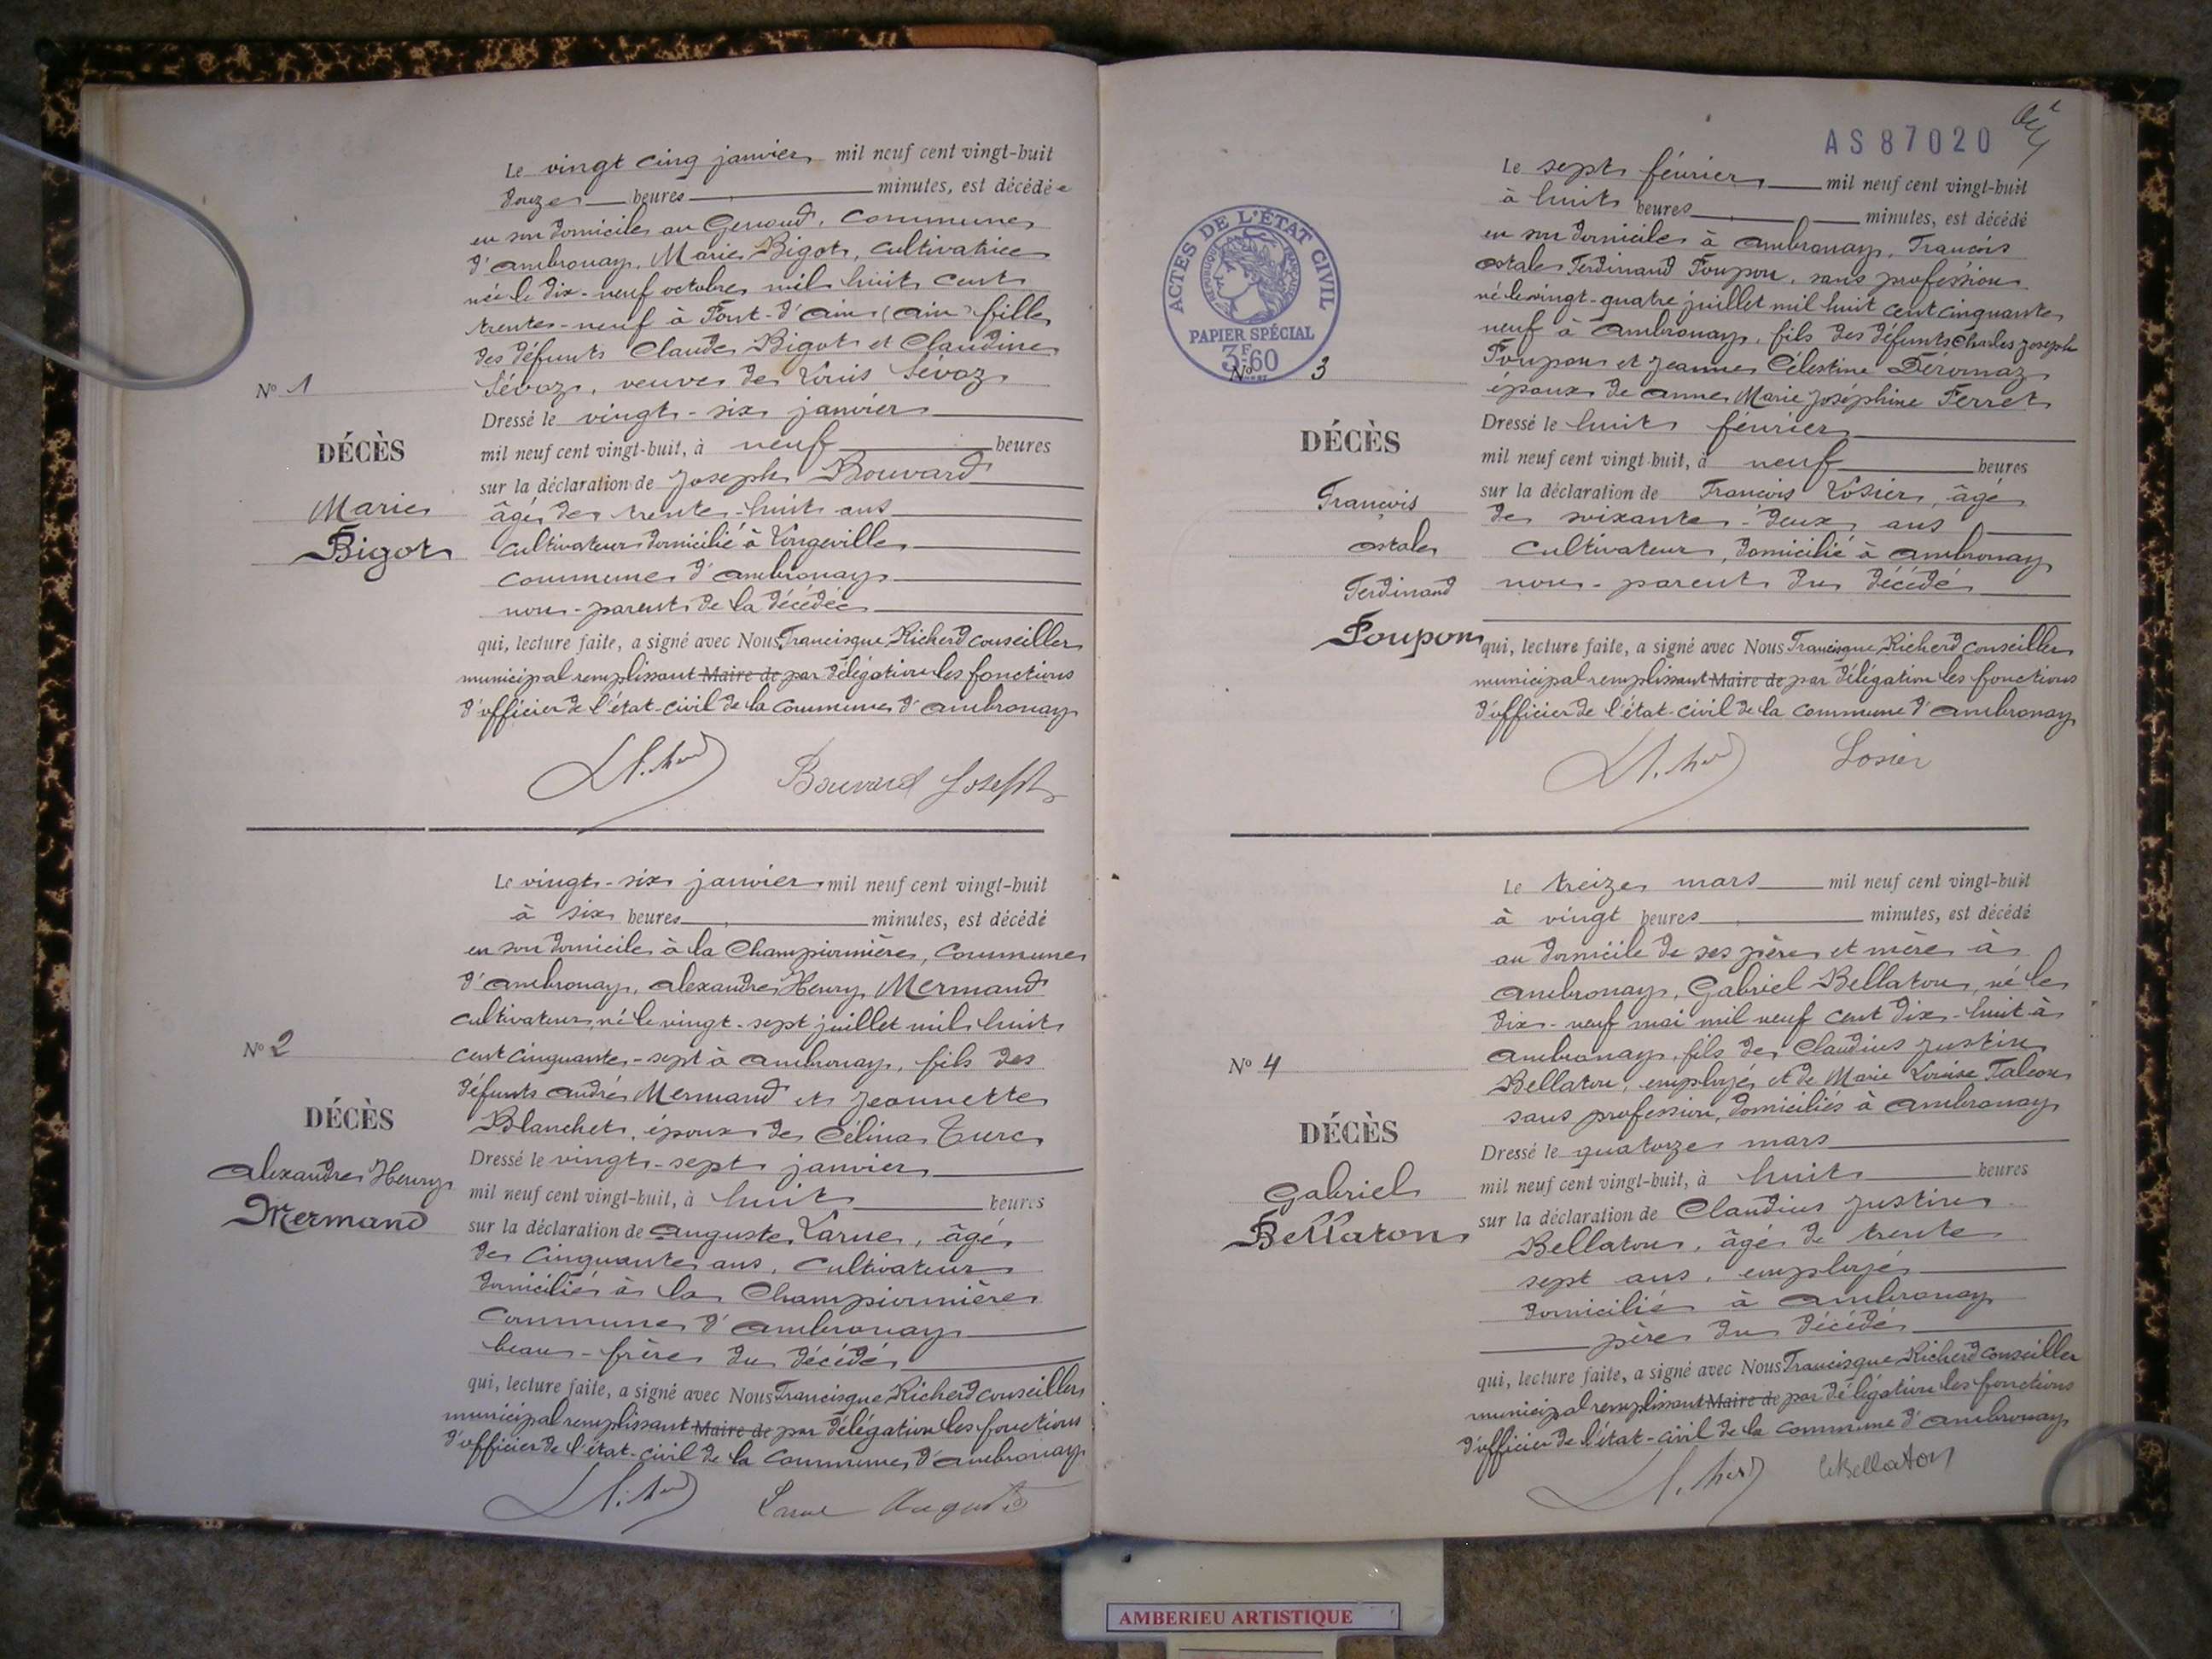 Le vingt cinq janvier mil neuf cent vingt-huit
douze heures minutes, est décédée
en son domicile au Genoud, commune
d'ambronay, Marie Bigot, cultivatrice
née le dix-neuf octobre mil huit cent
trente-neuf à Pont-d'Ain (ain) fille
des défunts Claude Bigot et Claudine
Sévoz, veuve de Louis Sévoz
Nº 1
Dressé le vingt-six janvier
mil neuf cent vingt-huit, à neuf heures
DÉCÈS
sur la déclaration de Joseph Bouvard
Marie
âgé de trente-huit ans
Bigot
cultivateur domicilié à Longeville
commune d'ambronay
non-parent de la décédée
qui, lecture faite, a signé avec Nous Francisque Richerd conseiller
municipal remplissant Maire de par délégation les fonctions
d'officier de l'état-civil de la commune d'ambronay
Bouvard Joseph
Le vingt-six janvier mil neuf cent vingt-huit
à six heures minutes, est décédé
en son domicile à la Championnière, commune
d'ambronay, alexandre Henry Mermand
cultivateur né le vingt-sept juillet mil huit
cent cinquante-sept à ambronay, fils des
défunts andré Mermand et Jeannette
Blanchet, époux de Célina Turc
Nº 2
Dressé le vingt-sept janvier
mil neuf cent vingt-huit, à huit heures
DÉCÈS
alexandre Henry
Mermand
sur la déclaration de auguste Larue, âgé
de cinquante ans, cultivateur
domicilié à la Championnière
commune d'ambronay
beau-frère du décédé
qui, lecture faite, a signé avec Nous Francisque Richerd conseiller
municipal remplissant Maire de par délégation les fonctions
d'officier de l'état-civil de la commune d'ambronay
Larue Auguste
AS 87020
ACTES DE L'ÉTAT CIVIL
RÉPUBLIQUE FRANÇAISE
PAPIER SPÉCIAL
3F60
Nº 3
Le sept février mil neuf cent vingt-huit
à huit heures minutes, est décédé
en son domicile à ambronay, François
astale Ferdinand Poupon, sans profession
né le vingt-quatre juillet mil huit cent cinquante
neuf à ambronay, fils des défunts Charles Joseph
Poupon et Jeanne Célestine Dérornaz
époux de anne Marie Joséphine Ferret
Dressé le huit février
mil neuf cent vingt-huit, à neuf heures
DÉCÈS
François
astale
Ferdinand
Poupon
sur la déclaration de François Losier, âgé
de soixante-deux ans
cultivateur, domicilié à ambronay
non-parent du décédé
qui, lecture faite, a signé avec Nous Francisque Richerd conseiller
municipal remplissant Maire de par délégation les fonctions
d'officier de l'état-civil de la commune d'ambronay
Losier
Le treize mars mil neuf cent vingt-huit
à vingt heures minutes, est décédé
au domicile de ses père et mère à
ambronay, Gabriel Bellaton, né le
dix-neuf mai mil neuf cent dix-huit à
ambronay, fils de Claudius Justin
Bellaton, employé et de Marie Louise Talcon
sans profession, domiciliés à ambronay
Nº 4
DÉCÈS
Gabriel
Bellaton
Dressé le quatorze mars
mil neuf cent vingt-huit, à huit heures
sur la déclaration de Claudius Justin
Bellaton, âgé de trente
sept ans, employé
domicilié à ambronay
père du décédé
qui, lecture faite, a signé avec Nous Francisque Richerd conseiller
municipal remplissant Maire de par délégation les fonctions
d'officier de l'état-civil de la commune d'ambronay
Bellaton
AMBERIEU ARTISTIQUE